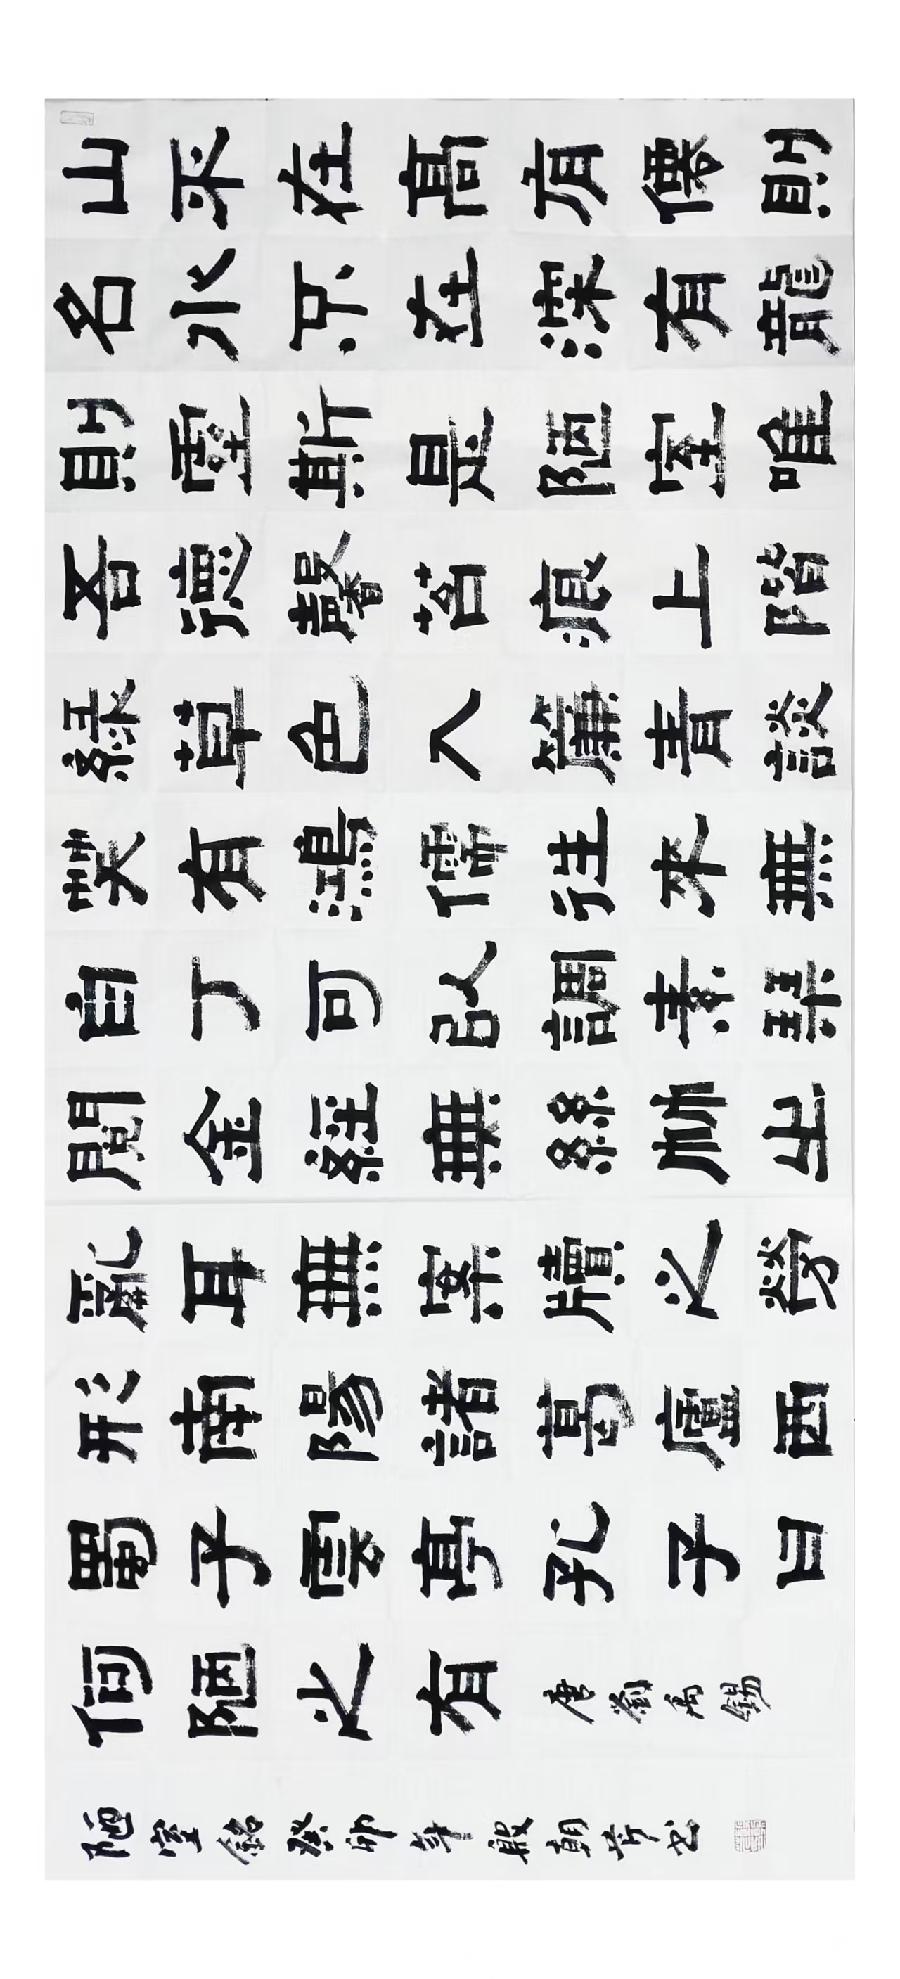 山不在高有僊則
名水不在深有龍
則靈斯是陋室唯
吾德馨苔痕上階
綠草色入簾青談
笑有鴻儒往來無
白丁可以調素琴
閱金經無絲竹之
亂耳無案牘之勞
形南陽諸葛廬西
蜀子雲亭孔子曰
何陋之有唐劉禹錫
陋室銘癸卯年殷朝书